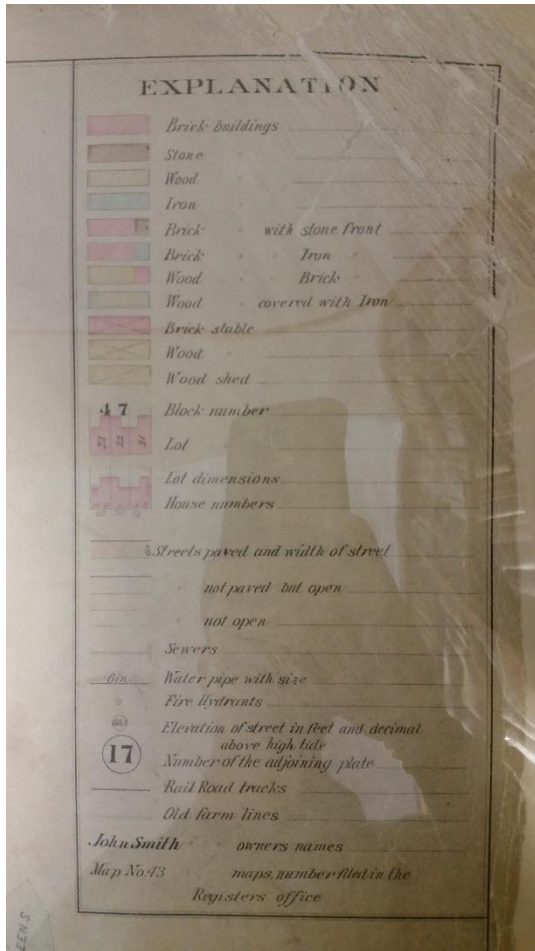 EXPLANATION
Brick buildings
Stone "
Wood "
Iron "
Brick " with stone front
Brick " " Iron "
Wood " " Brick "
Wood " covered with Iron
Brick stable
Wood "
Wood shed
47 Block number
23 22 21 Lot
Lot dimensions
House numbers
60 Streets paved and width of street
" not paved but open
" not open
Sewers
6in Water pipe with size
Fire Hydrants
Elevation of street in feet and decimal
above high tide
17 Number of the adjoining plate
Rail Road tracks
Old farm lines
John Smith " owners names
Map No.43 " maps, number filed in the
Registers office
EENS